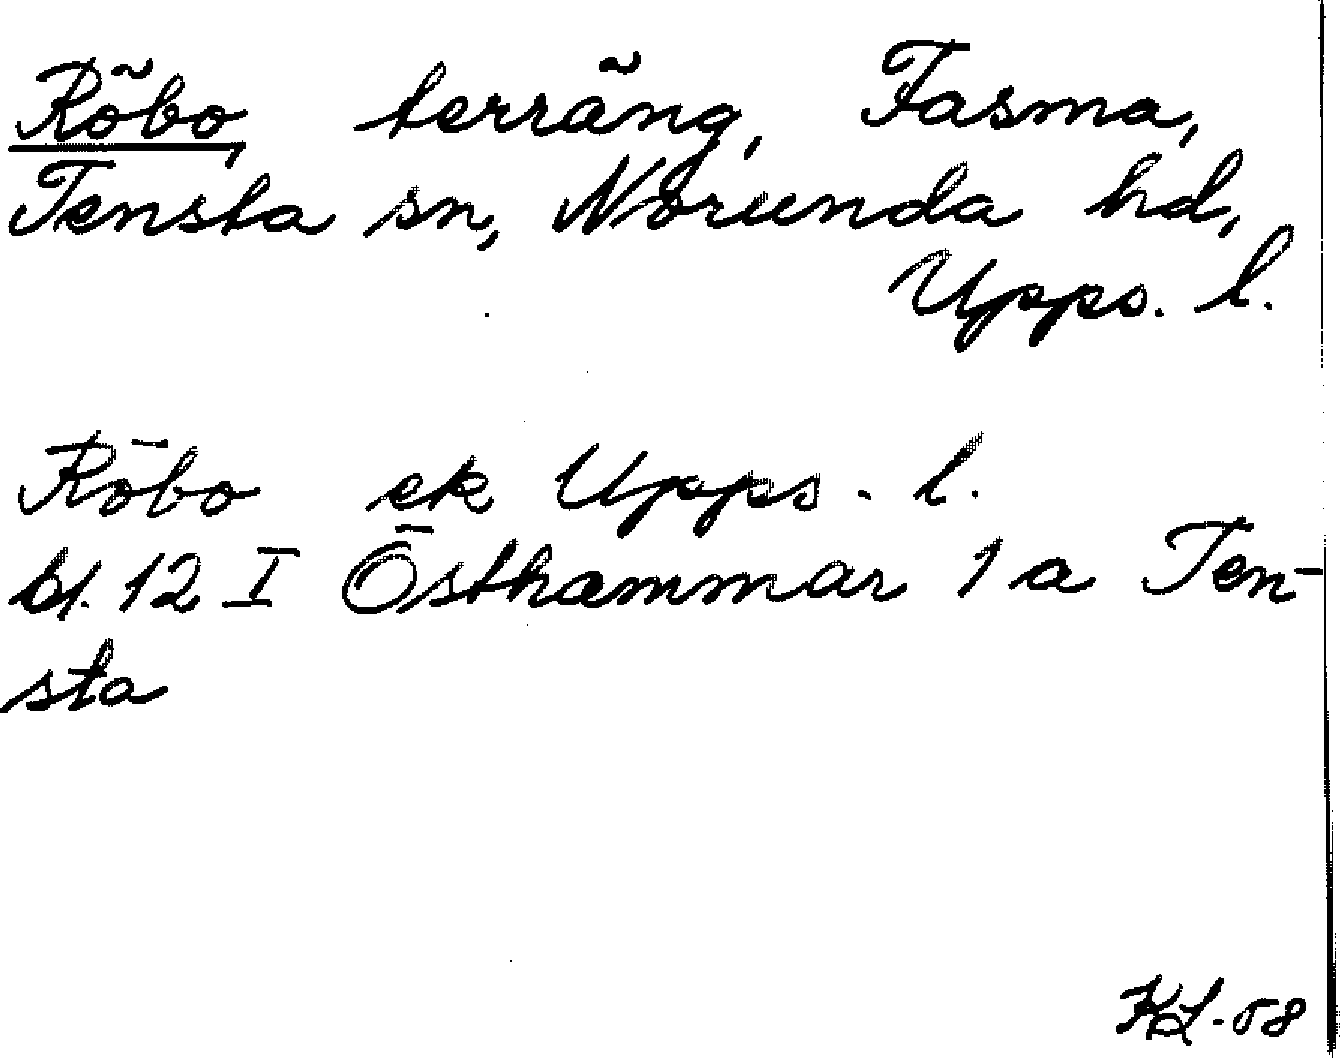 Röbo, terräng, Fasma,
Tensta sn, Norunda hd,
Upps. l.
Röbo ek Upps. l.
bl. 12 I Östhammar 1 a Ten-
sta
KL-58